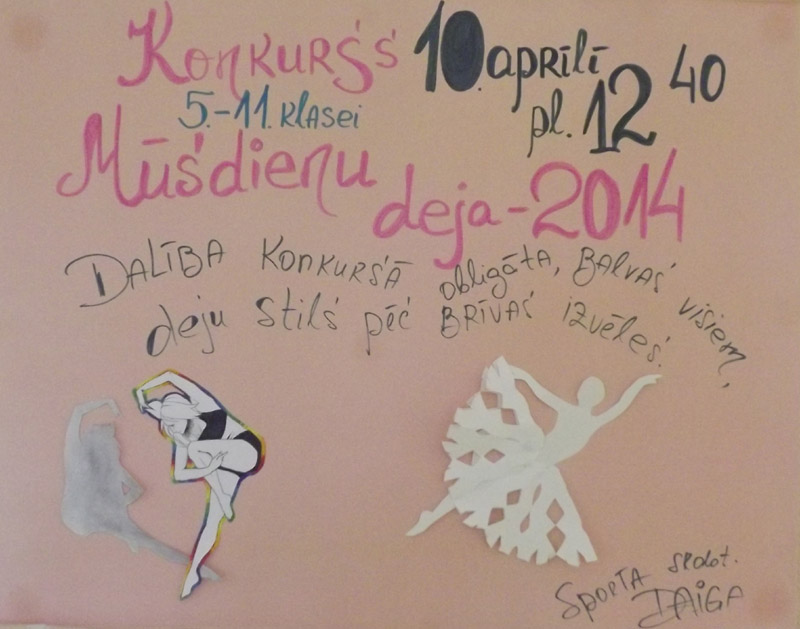 Konkurss 10. aprīlī
5.-11. klasei pl. 12 40
Mūsdienu
deja-2014
Dalība konkursā obligāta, Balvas visiem,
deju stils pēc Brīvas izvēles.
Sporta skolot.
Daiga